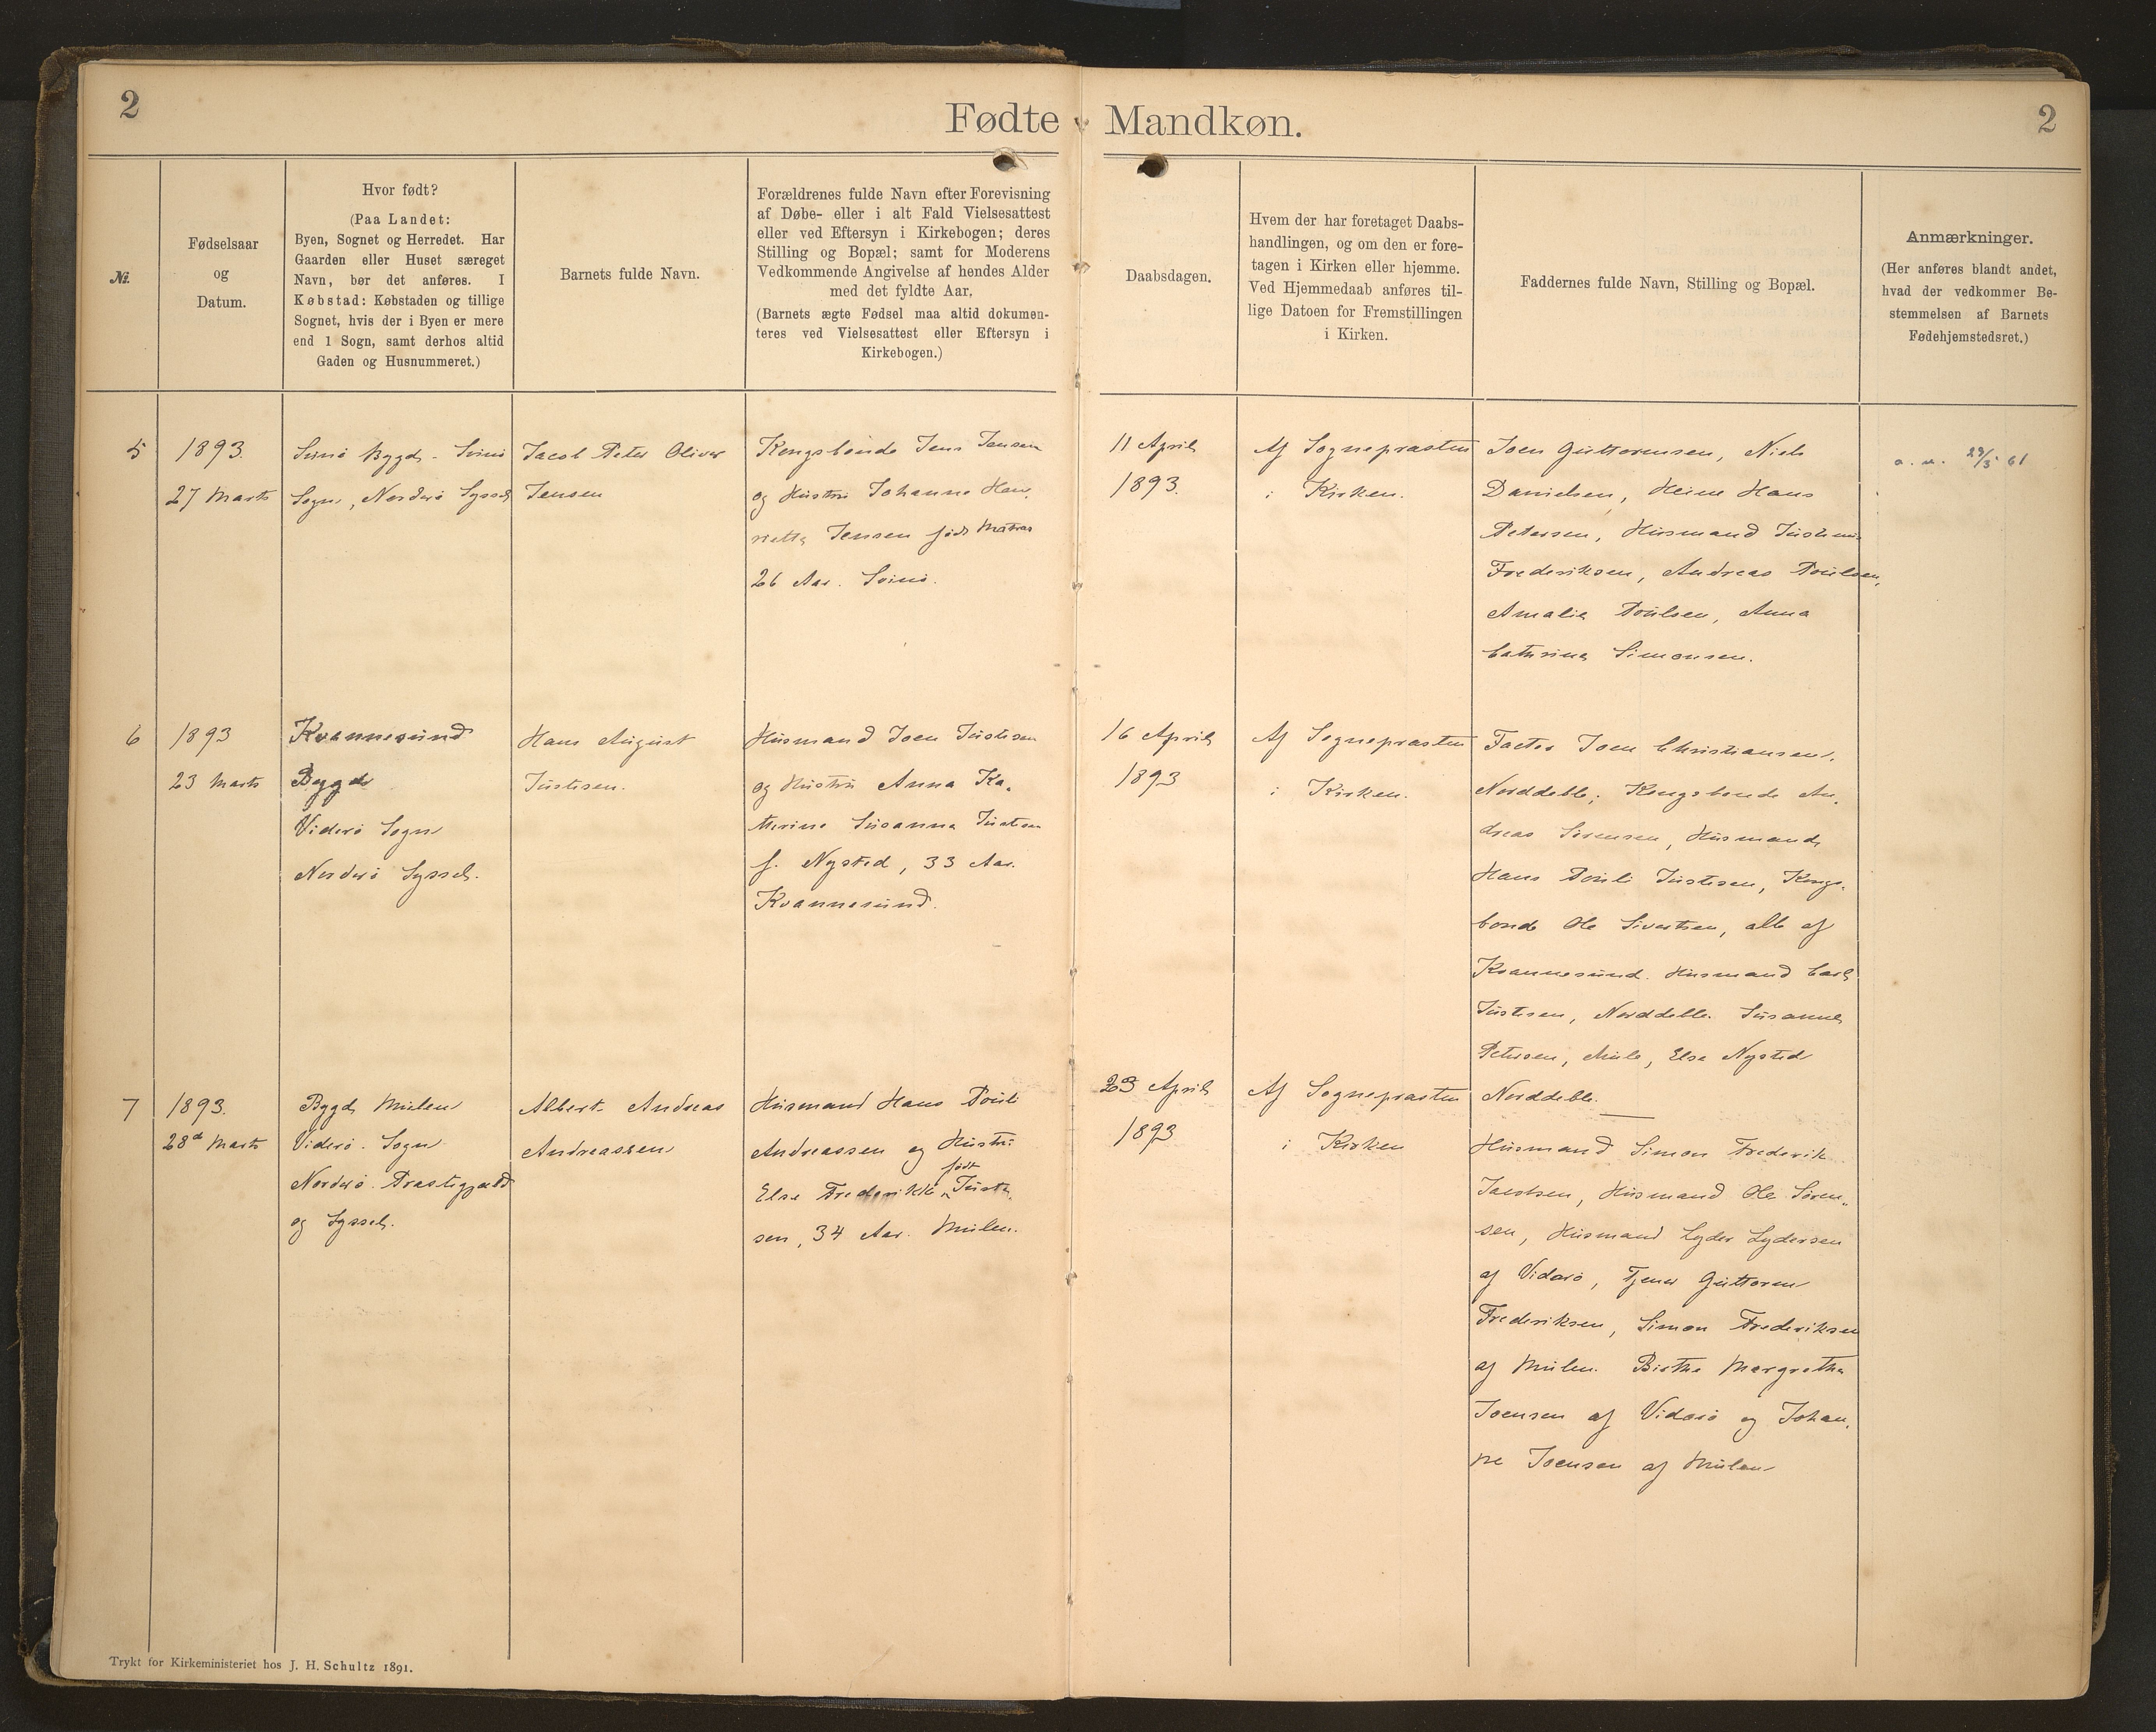 2
Fødte Mandkøn.
2
Nr.
Fødselsaar
og
Datum.
Hvor født?
(Paa Landet:
Byen, Sognet og Herredet. Har
Gaarden eller Huset særeget
Navn, bør det anføres. I
Købstad: Købstaden og tillige
Sognet, hvis der i Byen er mere
end 1 Sogn, samt derhos altid
Gaden og Husnummeret.)
Barnets fulde Navn.
Forældrenes fulde Navn efter Forevisning
af Døbe- eller i alt Fald Vielsesattest
eller ved Eftersyn i Kirkebogen; deres
Stilling og Bopæl; samt for Moderens
Vedkommende Angivelse af hendes Alder
med det fyldte Aar.
(Barnets ægte Fødsel maa altid dokumen-
teres ved Vielsesattest eller Eftersyn i
Kirkebogen.)
Daabsdagen.
Hvem der har foretaget Daabs-
handlingen, og om den er fore-
tagen i Kirken eller hjemme.
Ved Hjemmedaab anføres til-
lige Datoen for Fremstillingen
i Kirken.
Faddernes fulde Navn, Stilling og Bopæl.
Anmærkninger.
(Her anføres blandt andet,
hvad der vedkommer Be-
stemmelsen af Barnets
Fødehjemstedsret.)
5
1893.
27 Marts
Svinö Bygd. Svinö
Sogn, Norderö Syssel
Jacob Peter Oliver
Jensen
Kongsbonde Jens Jensen
og Hustru Johanne Hen-
riette Jensen født Matras
26 Aar. Svinö.
11 April
1893.
Af Sognepræsten
i Kirken.
Joen Guttormsen, Niels
Danielsen, Heine Hans
Petersen, Husmand
Frederiksen, Andreas Poulsen,
Amalia Poulsen, Anna
Cathrina Simonsen.
a. u. 29/5 61
6
1893
23 Marts
Kvannesund
Bygd
Viderö Sogn
Norderö Syssel.
Hans August
Justesen.
Husmand Joen Justesen
og Hustru Anna Ka-
therine Susanna Justesen
f. Nysted, 33 Aar.
Kvannesund.
16 April
1893
Af Sognepræsten
i Kirken.
Factor Joen Christiansen,
Norddeble; Kongsbonde An-
dreas Sörensen, Husmand
Hans Pouli Justesen, Kongs-
bonde Ole Sivertsen, alle af
Kvannesund. Husmand Carl
Justesen, Norddeble. Susanne
Petersen, Mule, Else Nysted
Norddeble.
7
1893.
28d Marts
Bygd Mulen
Viderö Sogn
Norderö Præstegjæld
og Syssel.
Albert Andreas
Andreassen
Husmand Hans Pouli
Andreassen og Hustru
Else Frederikke født Juste-
sen, 34 Aar. Mulen.
23 April
1893
Af Sognepræsten
i Kirken
Husmand Simon Frederik
Jacobsen, Husmand Ole Sören-
sen, Husmand Lyder Lydersen
af Viderö, Tjener Guttorm
Frederiksen, Simon Frederiksen
af Mulen. Birthe Margretha
Joensen af Viderö og Johan-
ne Joensen af Mulen
Trykt for Kirkeministeriet hos J. H. Schultz 1891.